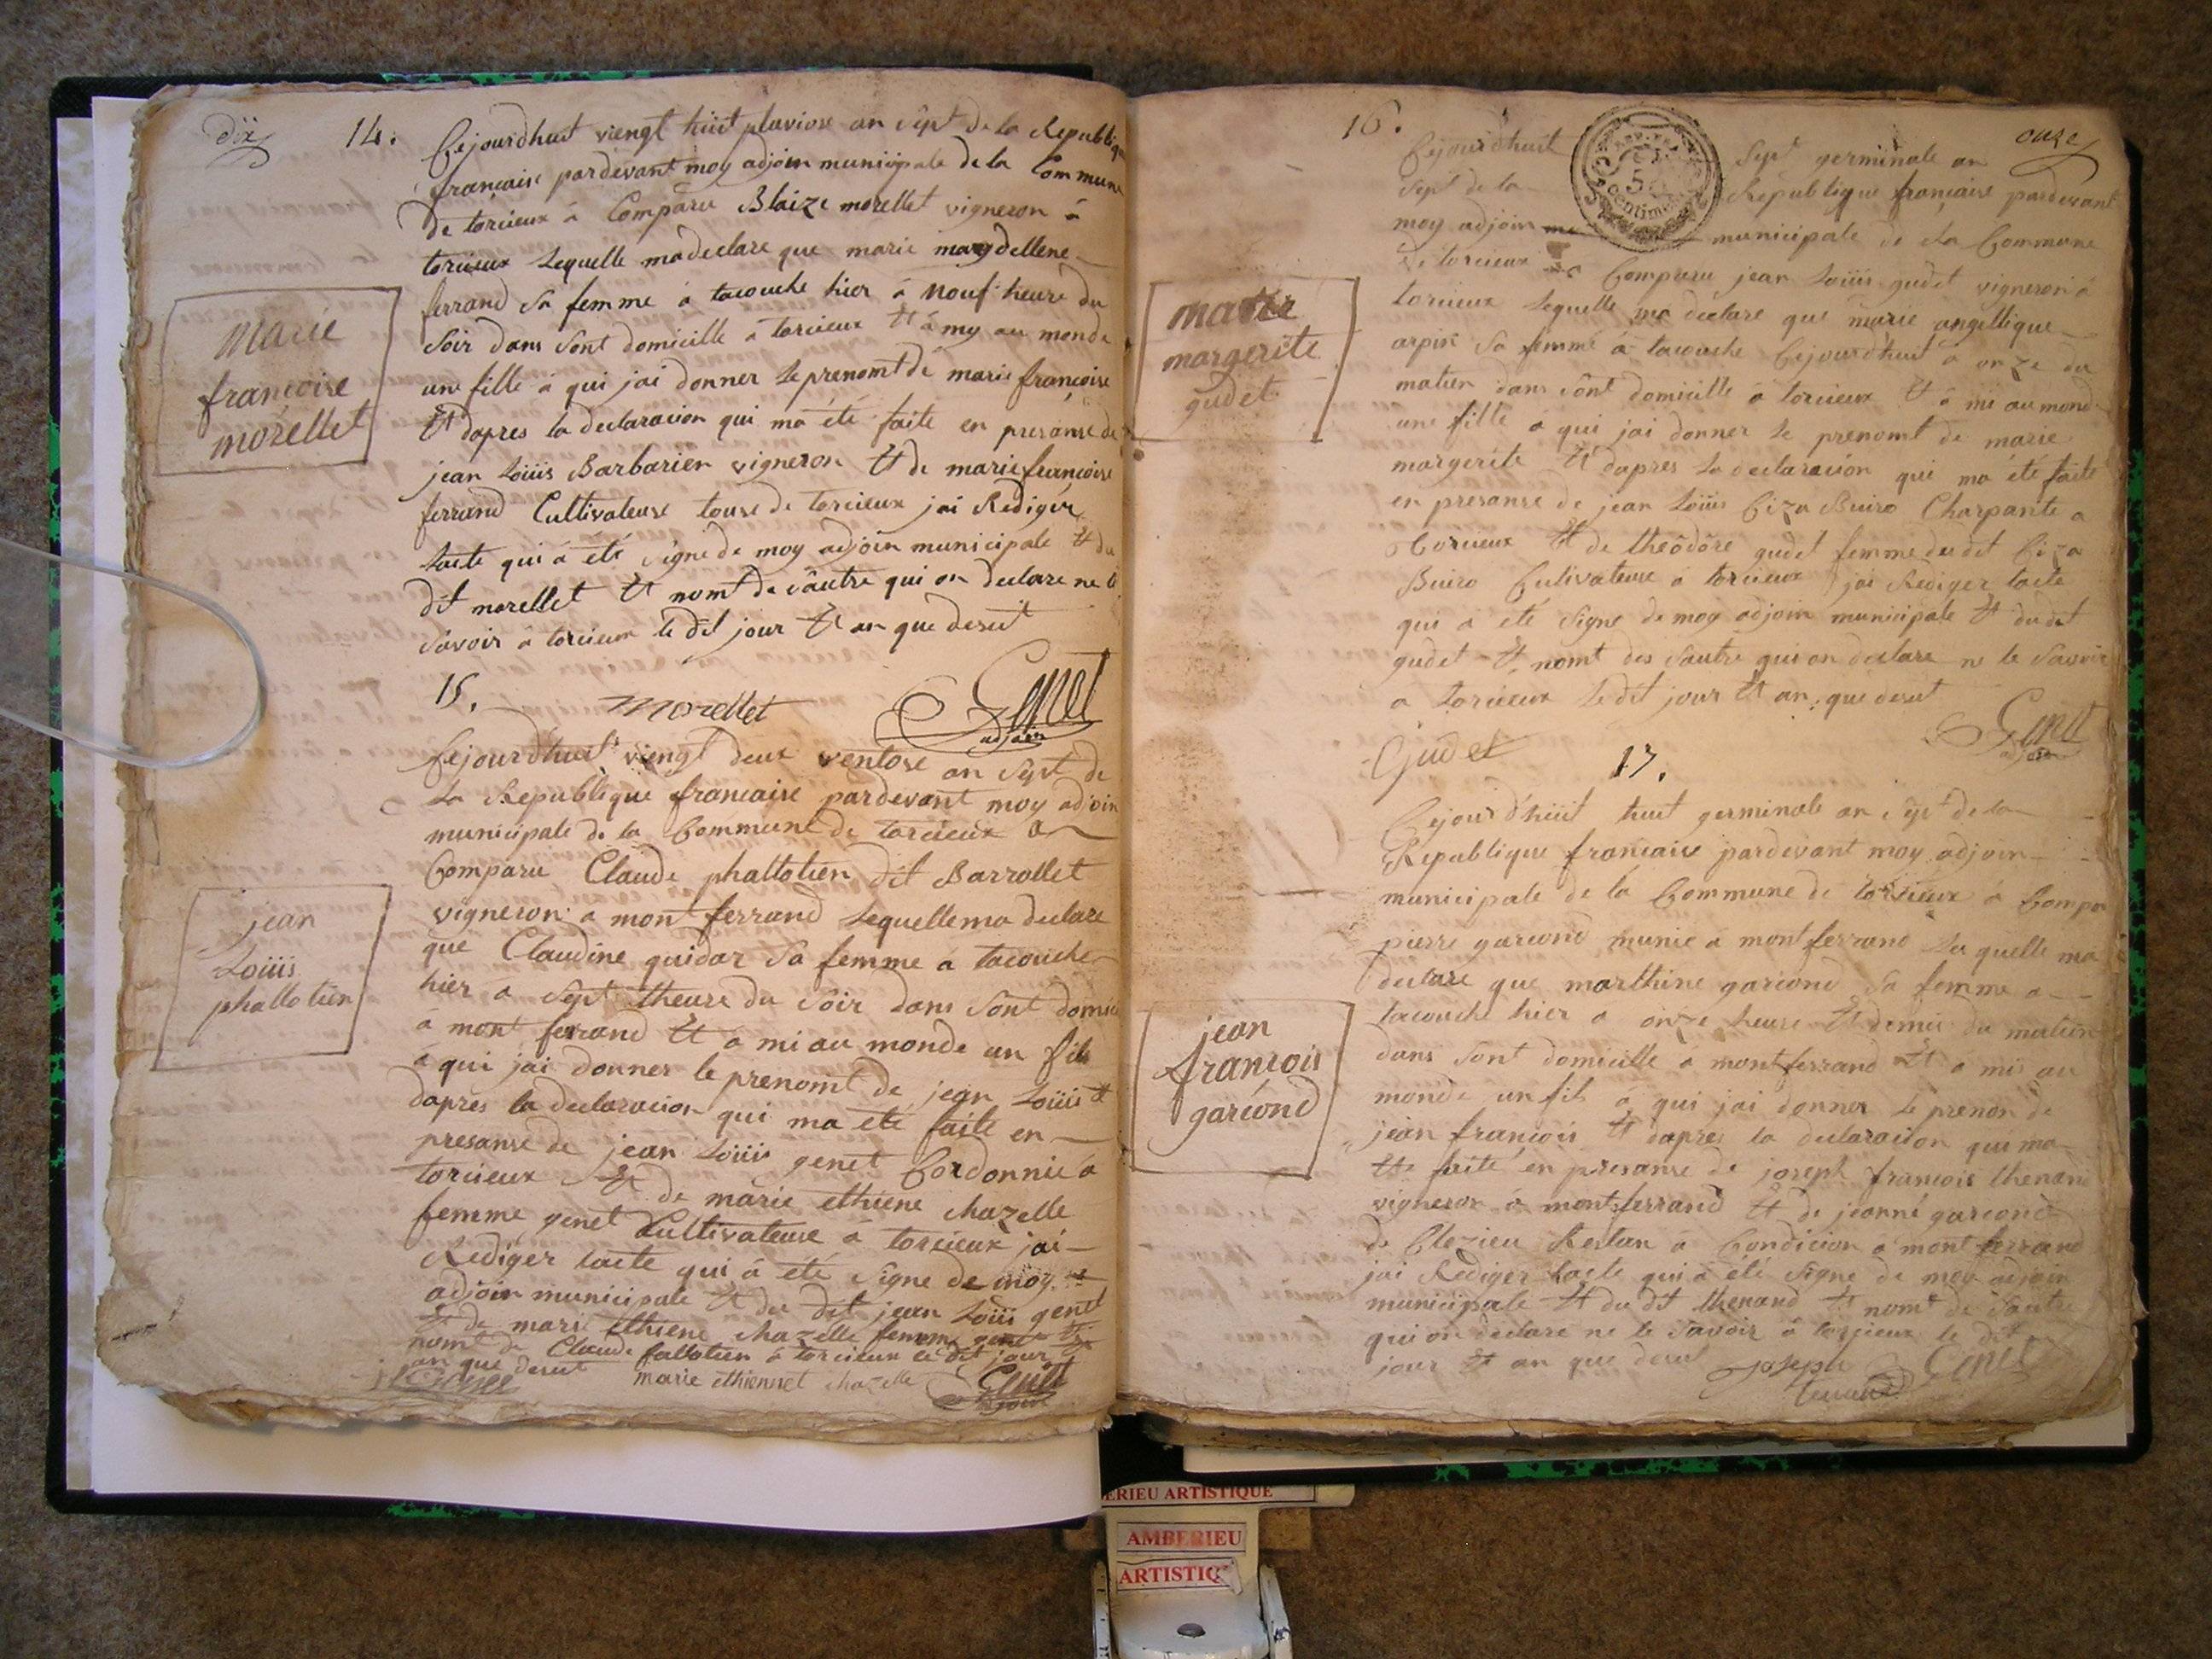 dix
14.
Cejourdhuit viengt huit pluviose an sept de la Republique
francaise pardevant moy adjoin municipale de la Commune
de torcieux à Comparu Blaize morellet vigneron à
torcieux Lequelle madeclare que marie magdellene
ferrand sa femme à tacouche hier à nouf heure du
soir dans sont domicille à torcieux et à my au monde
une fille à qui jai donner le prenomt de marie françoise
et dapres la declaracion qui ma été faite en presanse de
jean Loüis Barbarien vigneron et de marie françoise
ferrand Cultivateuse touse de torcieux jai Rediger
lacte qui à été signe de moy adjoin municipale et du
dit morellet et nomt de sautre qui on declare ne le
savoir à torcieux le dit jour et an que desut
marie
françoise
morellet
morellet
Genet
adjoin
15.
Cejourdhuit viengt deux ventose an sept de
la Republique francaise pardevant moy adjoin
municipale de la Commune de torcieux a
Comparu Claude phallotien dit Barrollet
vigneron a mont ferrand Lequelle ma declare
que Claudine guidar sa femme à tacouche
hier a sept theure du soir dans sont domici
à mont ferrand et à mi au monde un fils
à qui jai donner le prenomt de jean Loüis et
dapres la declaracion qui ma été faite en
presanse de jean Loüis genet Cordonnié à
torcieux et de marie ethiene chazelle
femme genet Cultivateuse à torcieux jai
Rediger lacte qui à été signe de moy
adjoin municipale et du dit jean Loüi genet
et de marie Ethiene chazelle femme genet et
nomt de Claude fallotien à torcieux le dit jour et
an que desut
jean
Loüis
phallotien
marie ethiennet chazelle
Genet
adjoin
onze
16.
Cejourdhuit sept germinale an
sept de la Republique française pardevant
moy adjoin municipale de la Commune
de torcieux a Comparu jean Loüis gudet vigneron à
torcieux Lequelle ma déclare que marie angellique
arpin sa femme à tacouche Cejourdhuit à onze du
matien dans sont domicille à torcieux et à mi au monde
une fille à qui jai donner le prenomt de marie
margerite et dapres la declaracion qui ma été faite
en presanse de jean Loüis Biza Buiro Charpante a
torcieux et de theôdôre gudet femme du dit Biza
Buiro Cultivateuse à torcieux jai Rediger lacte
qui a été signe de moy adjoin municipale et du dit
gudet et nomt des sautre qui on declare ne le savoir
a torcieux le dit jour et an que desut
5
Centimes
marie
margerite
gudet
Gudet
Genet
adjoin
17.
Cejourdhüit huit germinale an sept de la
Republique francaise pardevant moy adjoin
municipale de la Commune de torcieux à Compa
pierre garcond munié à montferrand Laquelle ma
declare que marthine garcond sa femme a
tacouche hier a onze heure et demie du matien
dans sont domicille à montferrand et à mis au
monde un fils à qui jai donner le prenon de
jean françois et dapres la declaracion qui ma
ete faite en presanse de joseph francois thenand
vigneron à montferrand et de jeanne garcond
de Clezieu Restan a Condicion a mont ferrand
jai Rediger lacte qui à été signe de moy adjoin
municipale et du dit thenand et nomt de sautre
qui on declare ne le savoir à torcieux le dit
jour et an que desut
jean
francois
garcond
joseph
tenand
Genet
AMBERIEU
ARTISTIQUE
AMBERIEU
ARTISTIQ